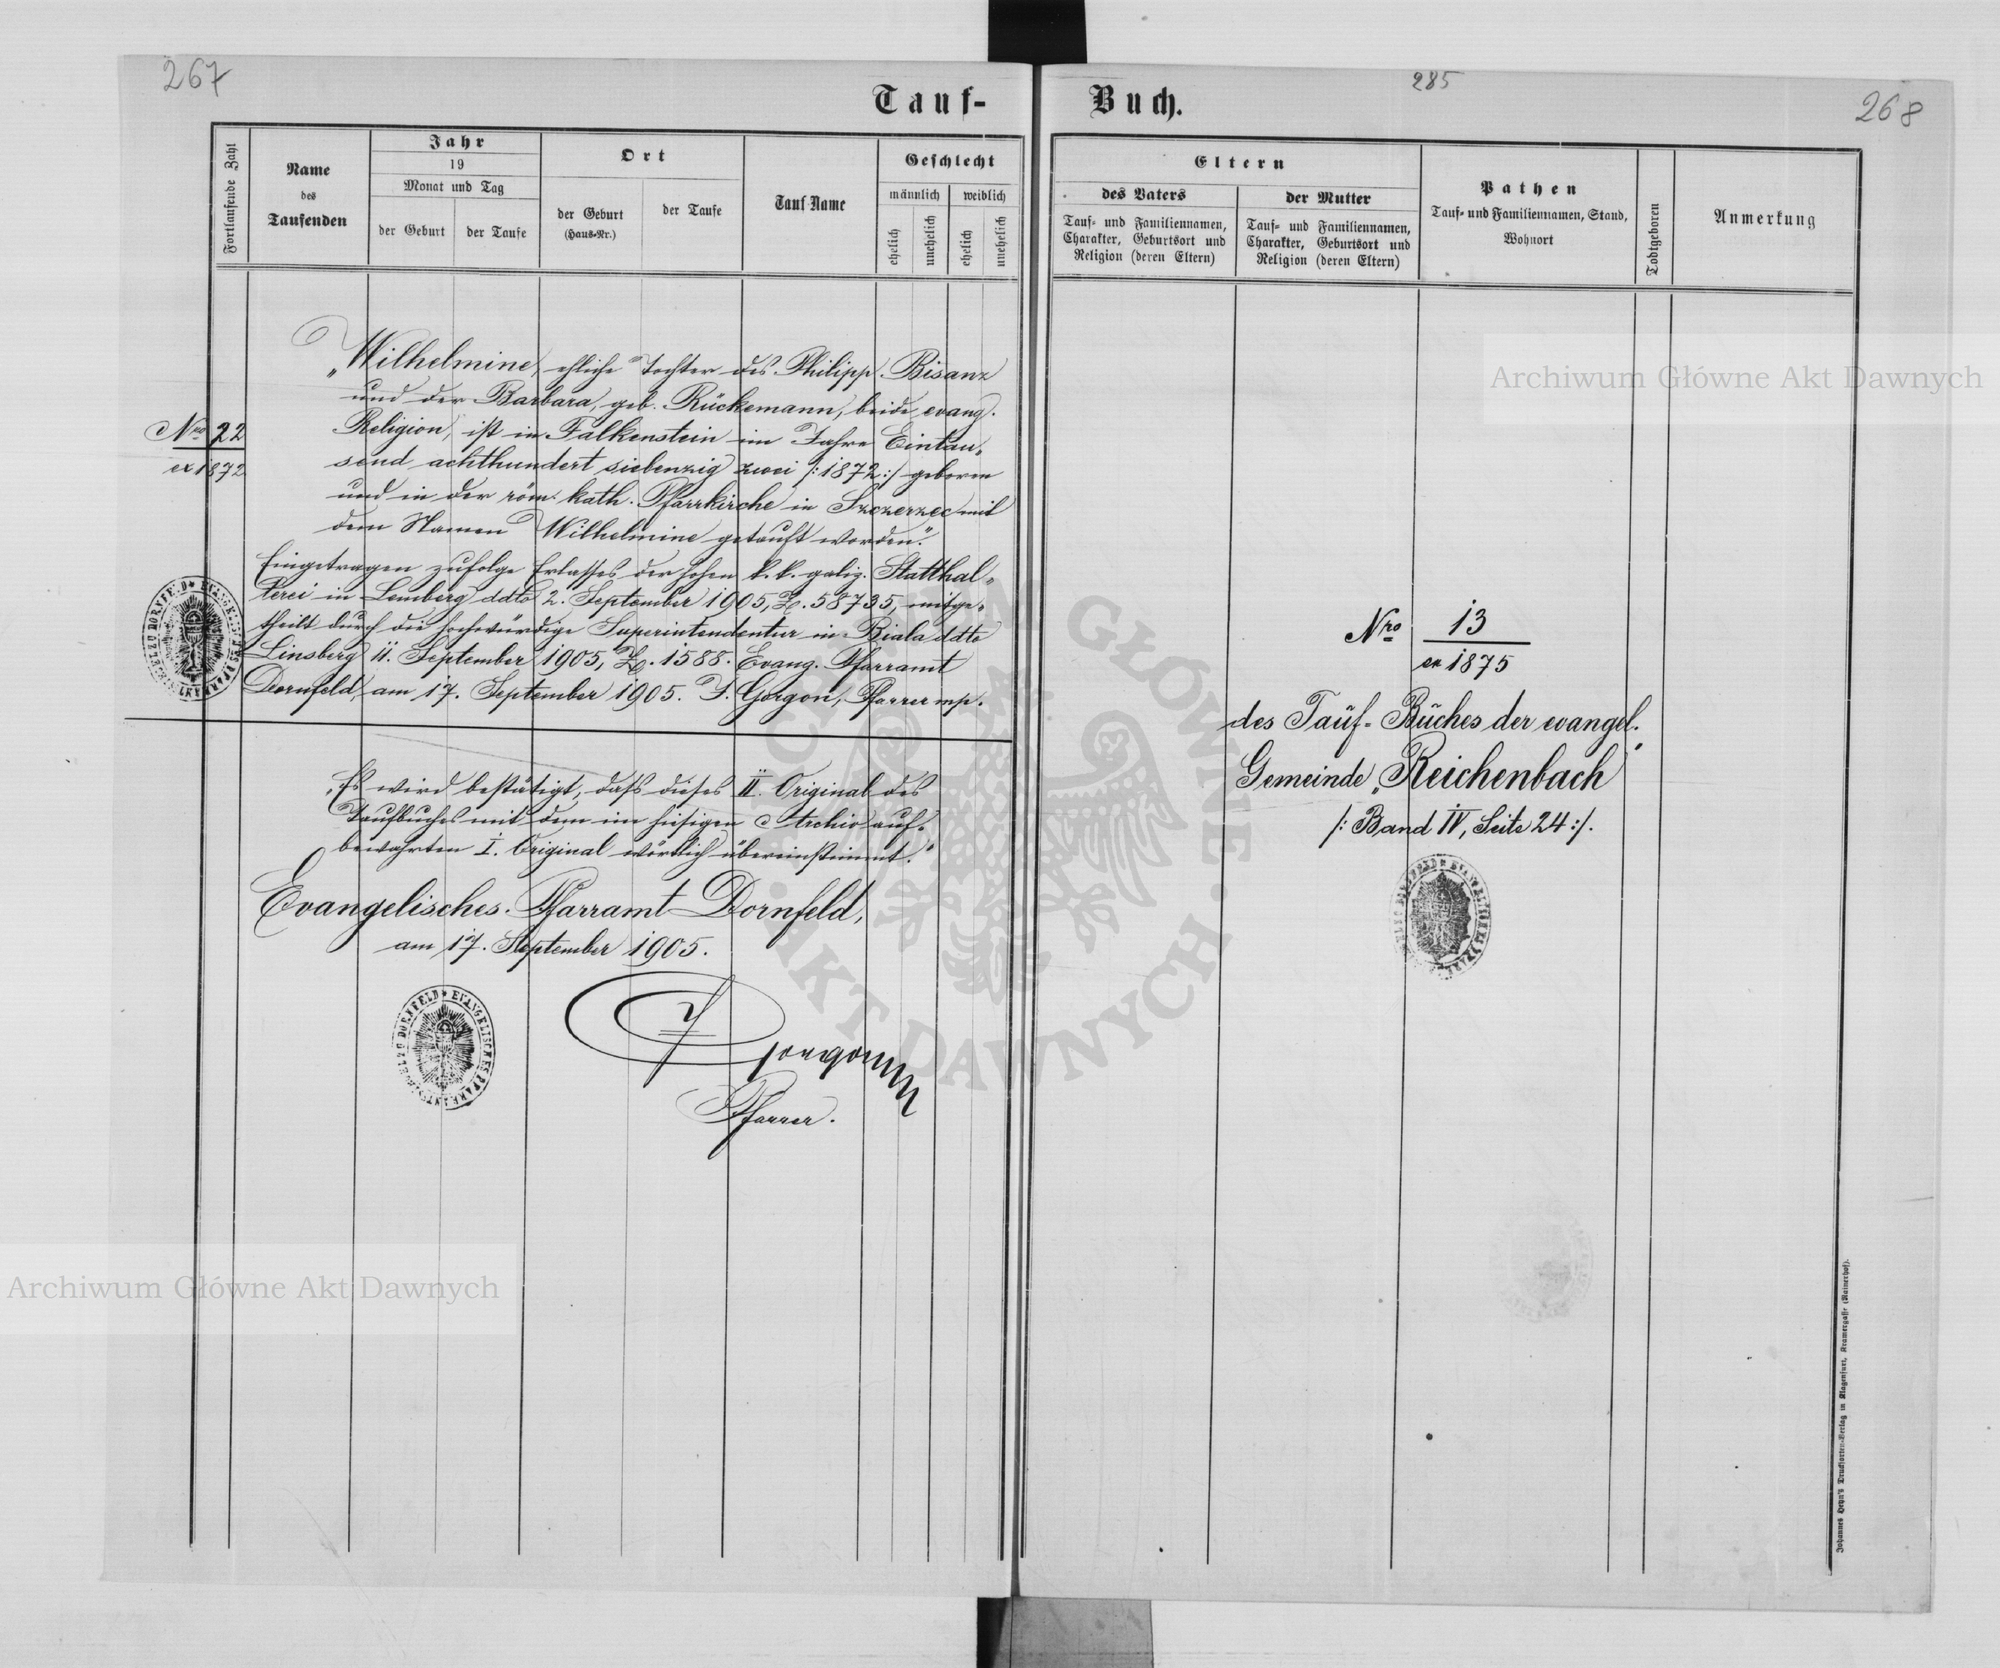 267
285
268
Tauf-
Buch.
Fortlaufende Zahl
Name
des
Taufenden
Jahr
19
Monat und Tag
der Geburt
der Taufe
Ort
der Geburt
(Haus-Nr.)
der Taufe
Tauf-Name
Geschlecht
männlich
weiblich
ehelich
unehelich
ehelich
unehelich
Eltern
des Vaters
Tauf- und Familiennamen,
Charakter, Geburtsort und
Religion (deren Eltern)
der Mutter
Tauf- und Familiennamen,
Charakter, Geburtsort und
Religion (deren Eltern)
Pathen
Tauf- und Familiennamen, Stand,
Wohnort
Todtgeboren
Anmerkung
Nro 22
ex 1872
„Wilhelmine, ehliche Tochter des Philipp Bisanz
und der Barbara, geb. Rückemann, beide evang.
Religion, ist in Falkenstein im Jahre Eintau„
send achthundert siebenzig zwei /:1872:/ geboren
und in der röm. kath. Pfarrkirche in Szczerzec mit
dem Namen Wilhelmine getauft worden."
Eingetragen zufolge Erlasses der hohen k. k. galiz. Statthal„
terei in Lemberg ddto 2. September 1905, Z. 58735, mitge„
theilt durch die hochwürdige Superintendentur in Biala ddto
Linsberg 11. September 1905, Z. 1588. Evang. Pfarramt
Dornfeld, am 17. September 1905. J. Gorgon, Pfarrer mp.
„Es wird bestätigt, dass dieses II. Original des
Taufbuches mit dem im hiesigen Archiv auf„
bewahrten I. Original wörtlich übereinstimmt."
Evangelisches Pfarramt Dornfeld,
am 17. September 1905.
J Gorgon
Pfarrer.
Nro 13
ex 1875
des Tauf-Buches der evangel.
Gemeinde „Reichenbach"
/: Band IV, Seite 24:/.
EVANGELISCHES PFARRAMTS-SIEGEL ZU DORNFELD
Archiwum Główne Akt Dawnych
Archiwum Główne Akt Dawnych
ARCHIWUM GŁÓWNE AKT DAWNYCH
Johannes Heyn's Drucksorten-Verlag in Klagenfurt, Kramergasse (Rainerhof).